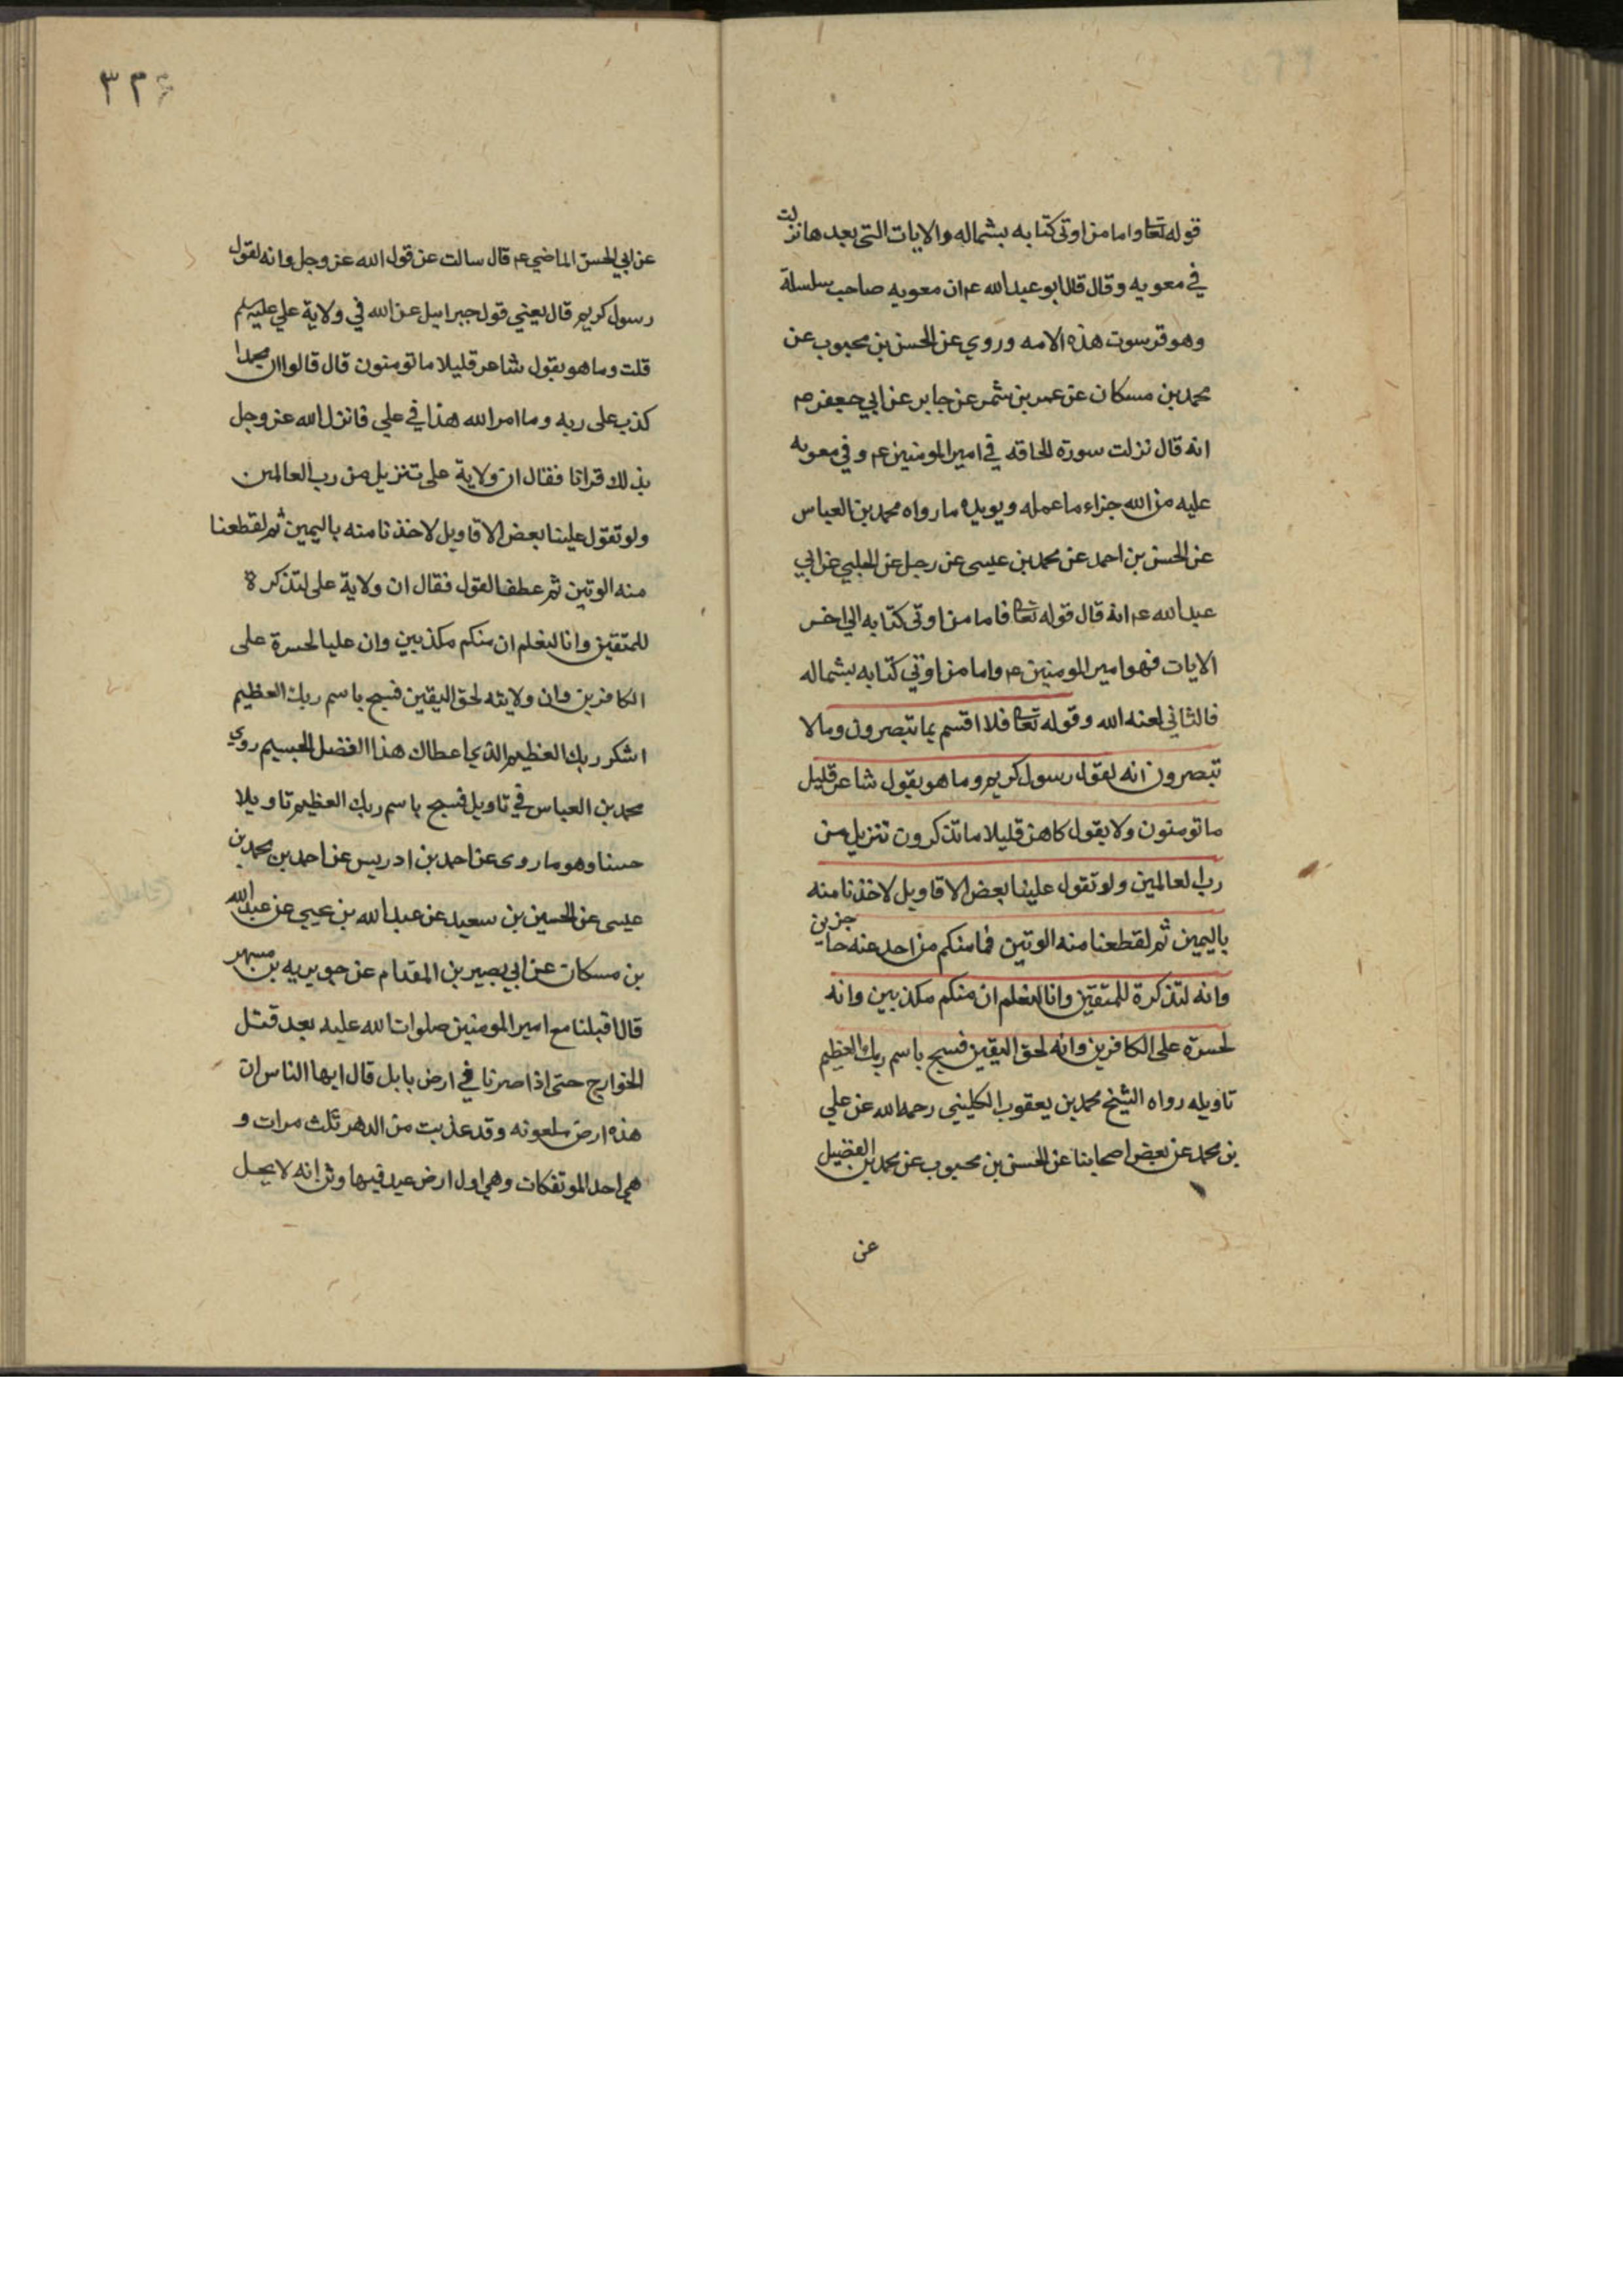 قوله تعا واما من اوتى كتابه بشماله والايات التى بعدها نزلت
في معويه وقال قال ابو عبد الله ع ان معويه صاحب سلسلة
وهو فرسون هذه الامه وروي عن الحسن بن محبوب عن
محمد بن مسكان عن عمر بن شمر عن جابر عن ابي جعفر ع
انه قال نزلت سورة الحاقه في امير المومنين ع وفي معويه
عليه من الله جزاء ما عمله ويويده ما رواه محمد بن العباس
عن الحسن بن احمد عن محمد بن عيسى عن رجل عن الحلبي عن ابي
عبد الله ع انه قال قوله تعا فاما من اوتى كتابه الي اخر
الايات فهو امير المومنين ع واما من اوتي كتابه بشماله
فالثاني لعنه الله وقوله تعا فلا اقسم بما تبصرون وما لا
تبصرون انه لقول رسول كريم وما هو بقول شاعر قليل
ما تومنون ولا بقول كاهن قليلا ما تذكرون تنزيل من
رب العالمين ولو تقول علينا بعض الاقاويل لاخذنا منه
باليمين ثم لقطعنا منه الوتين فما منكم من احد عنه حاجزين
وانه لتذكرة للمتقين وانا لنعلم ان منكم مكذبين وانه
لحسرة على الكافرين وانه لحق اليقين فسبح باسم ربك العظيم
تاويله رواه الشيخ محمد بن يعقوب الكليني رحمه الله عن علي
بن محمد عن بعض اصحابنا عن الحسن بن محبوب عن محمد بن الفضيل
عن
٣٢٤
عن ابي الحسن الماضي ع قال سالت عن قول الله عز وجل وانه لقول
رسول كريم قال يعني قول جبراييل عن الله في ولاية علي عليه سلم
قلت وما هو بقول شاعر قليلا ما تومنون قال قالوا ان محمدا
كذب على ربه وما امر الله هذا في علي فانزل الله عز وجل
بذلك قرانا فقال ان ولاية على تنزيل من رب العالمين
ولو تقول علينا بعض الاقاويل لاخذنا منه باليمين ثم لقطعنا
منه الوتين ثم عطف القول فقال ان ولاية على لتذكرة
للمتقين وانا لنعلم ان منكم مكذبين وان عليا لحسرة على
الكافرين وان ولايته لحق اليقين فسبح باسم ربك العظيم
اشكر ربك العظيم الذي اعطاك هذا الفضل الجسيم روي
محمد بن العباس في تاويل فسبح باسم ربك العظيم تاويلا
حسنا وهو ما روى عن احمد بن ادريس عن احمد بن محمد بن
عيسى عن الحسين بن سعيد عن عبد الله بن يحيي عن عبد الله
بن مسكان عن ابي بصير بن المقدام عن جويريه بن مسهر
قال اقبلنا مع امير المومنين صلوات الله عليه بعد قتل
الخوارج حتى اذا صرنا في ارض بابل قال ايها الناس ان
هذه ارض ملعونه وقد عذبت من الدهر ثلث مرات و
هي احد الموتفكات وهي اول ارض عبد فيها وثن انه لا يحل